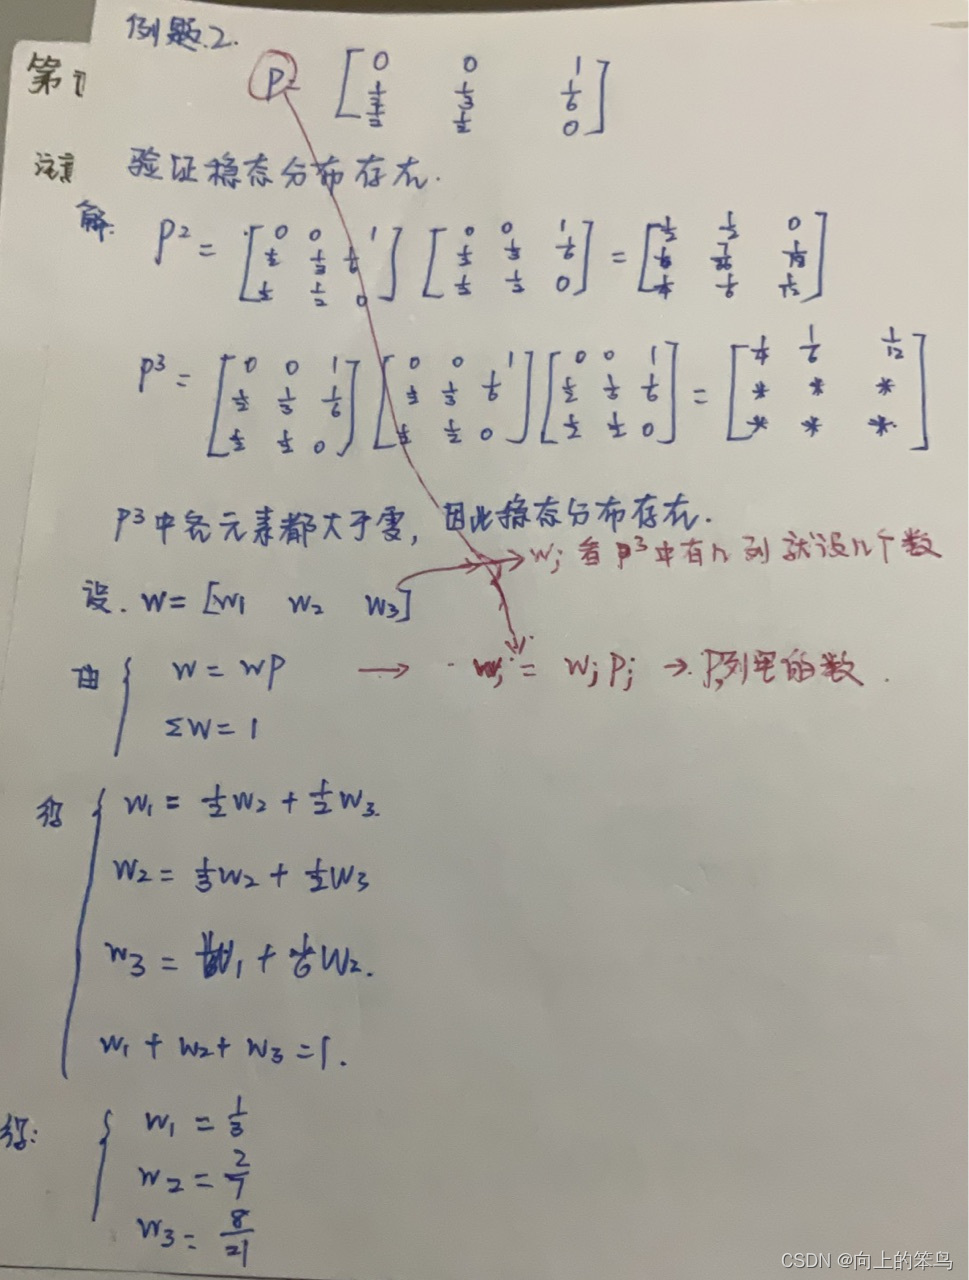 例题.2.
第
P= [0 0 1
1/2 1/3 1/6
1/2 1/2 0]
注意 验证稳态分布存在.
解: P² = [0 0 1; 1/2 1/3 1/6; 1/2 1/2 0] [0 0 1; 1/2 1/3 1/6; 1/2 1/2 0] = [1/2 1/2 0; 1/6 7/36 1/18; 1/4 1/6 1/12]
P³ = [0 0 1; 1/2 1/3 1/6; 1/2 1/2 0] [0 0 1; 1/2 1/3 1/6; 1/2 1/2 0] [0 0 1; 1/2 1/3 1/6; 1/2 1/2 0] = [1/4 1/6 1/12; * * *; * * *]
P³中各元素都大于零, 因此稳态分布存在.
→ wj 看P³中有几列就设几个数
设. W = [w1 w2 w3]
由 { W = WP → wj = wj Pj → P列里的数.
ΣW = 1
得 { W1 = 1/2 W2 + 1/2 W3.
W2 = 1/3 W2 + 1/2 W3
W3 = W1 + 1/6 W2.
W1 + W2 + W3 = 1.
得: { W1 = 1/3
W2 = 2/7
W3 = 8/21
CSDN @向上的笨鸟